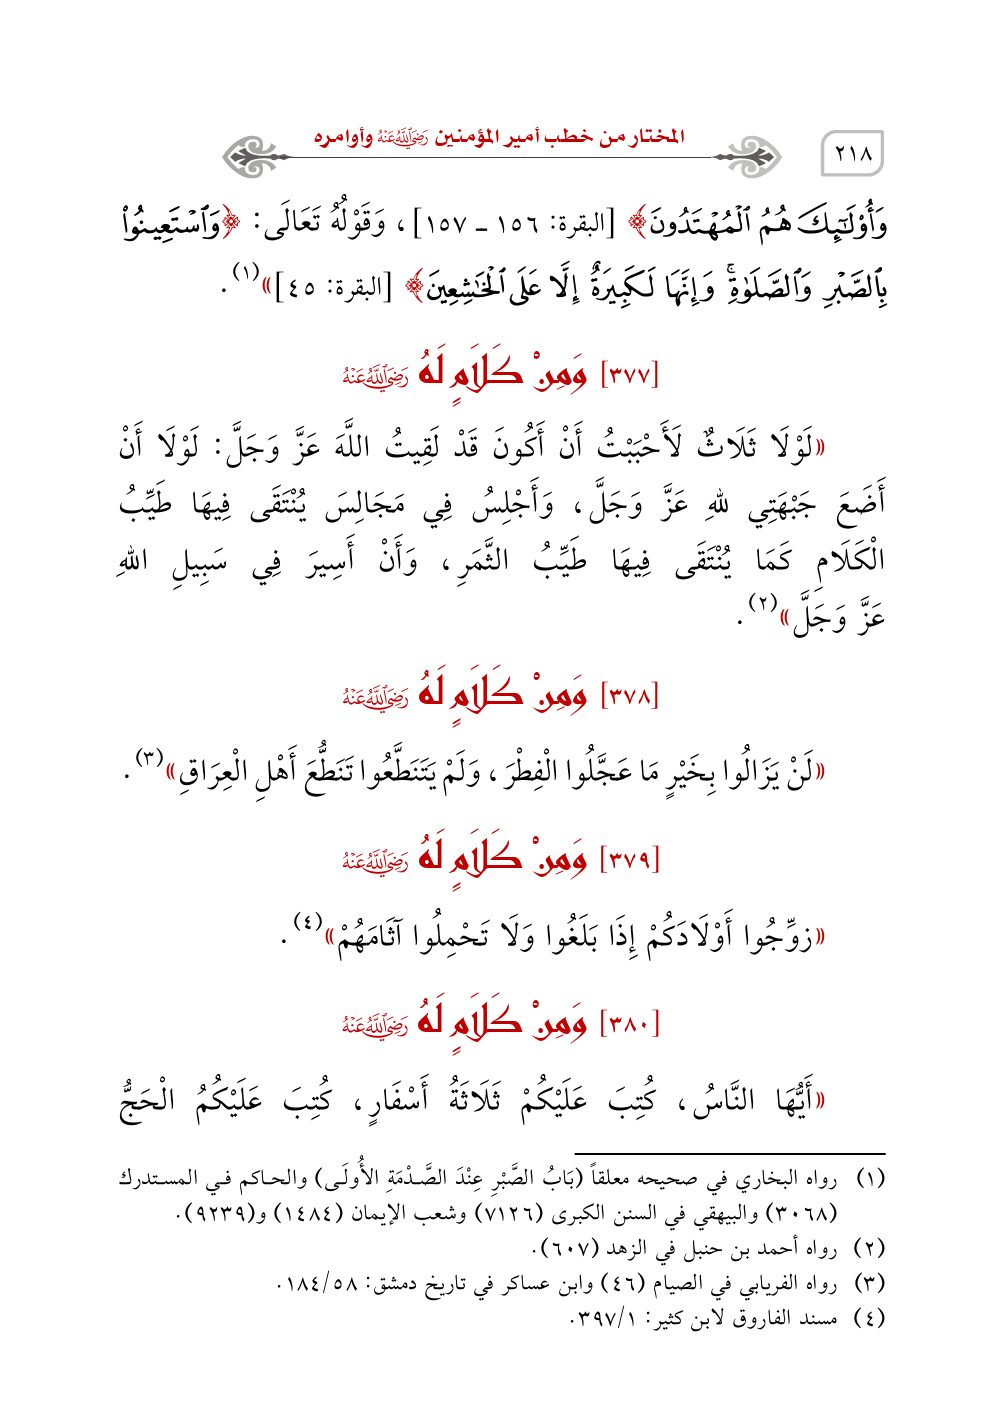 ٢١٨
المختار من خطب أمير المؤمنين رَضِيَ اللَّهُ عَنْهُ وأوامره
وَأُوْلَٰٓئِكَ هُمُ ٱلۡمُهۡتَدُونَ﴾ [البقرة: ١٥٦ ـ ١٥٧]، وَقَوْلُهُ تَعَالَى: ﴿وَٱسۡتَعِينُواْ
بِٱلصَّبۡرِ وَٱلصَّلَوٰةِۚ وَإِنَّهَا لَكَبِيرَةٌ إِلَّا عَلَى ٱلۡخَٰشِعِينَ﴾ [البقرة: ٤٥]»(١).
[٣٧٧] وَمِنْ كَلَامٍ لَهُ رَضِيَ اللَّهُ عَنْهُ
«لَوْلَا ثَلَاثٌ لَأَحْبَبْتُ أَنْ أَكُونَ قَدْ لَقِيتُ اللَّهَ عَزَّ وَجَلَّ: لَوْلَا أَنْ
أَضَعَ جَبْهَتِي للهِ عَزَّ وَجَلَّ، وَأَجْلِسُ فِي مَجَالِسَ يُنْتَقَى فِيهَا طَيِّبُ
الْكَلَامِ كَمَا يُنْتَقَى فِيهَا طَيِّبُ الثَّمَرِ، وَأَنْ أَسِيرَ فِي سَبِيلِ اللهِ
عَزَّ وَجَلَّ»(٢).
[٣٧٨] وَمِنْ كَلَامٍ لَهُ رَضِيَ اللَّهُ عَنْهُ
«لَنْ يَزَالُوا بِخَيْرٍ مَا عَجَّلُوا الْفِطْرَ، وَلَمْ يَتَنَطَّعُوا تَنَطُّعَ أَهْلِ الْعِرَاقِ»(٣).
[٣٧٩] وَمِنْ كَلَامٍ لَهُ رَضِيَ اللَّهُ عَنْهُ
«زوِّجُوا أَوْلَادَكُمْ إِذَا بَلَغُوا وَلَا تَحْمِلُوا آثَامَهُمْ»(٤).
[٣٨٠] وَمِنْ كَلَامٍ لَهُ رَضِيَ اللَّهُ عَنْهُ
«أَيُّهَا النَّاسُ، كُتِبَ عَلَيْكُمْ ثَلَاثَةُ أَسْفَارٍ، كُتِبَ عَلَيْكُمُ الْحَجُّ
(١) رواه البخاري في صحيحه معلقاً (بَابُ الصَّبْرِ عِنْدَ الصَّدْمَةِ الأُولَى) والحاكم في المستدرك
(٣٠٦٨) والبيهقي في السنن الكبرى (٧١٢٦) وشعب الإيمان (١٤٨٤) و(٩٢٣٩).
(٢) رواه أحمد بن حنبل في الزهد (٦٠٧).
(٣) رواه الفريابي في الصيام (٤٦) وابن عساكر في تاريخ دمشق: ٥٨/ ١٨٤.
(٤) مسند الفاروق لابن كثير: ١/ ٣٩٧.